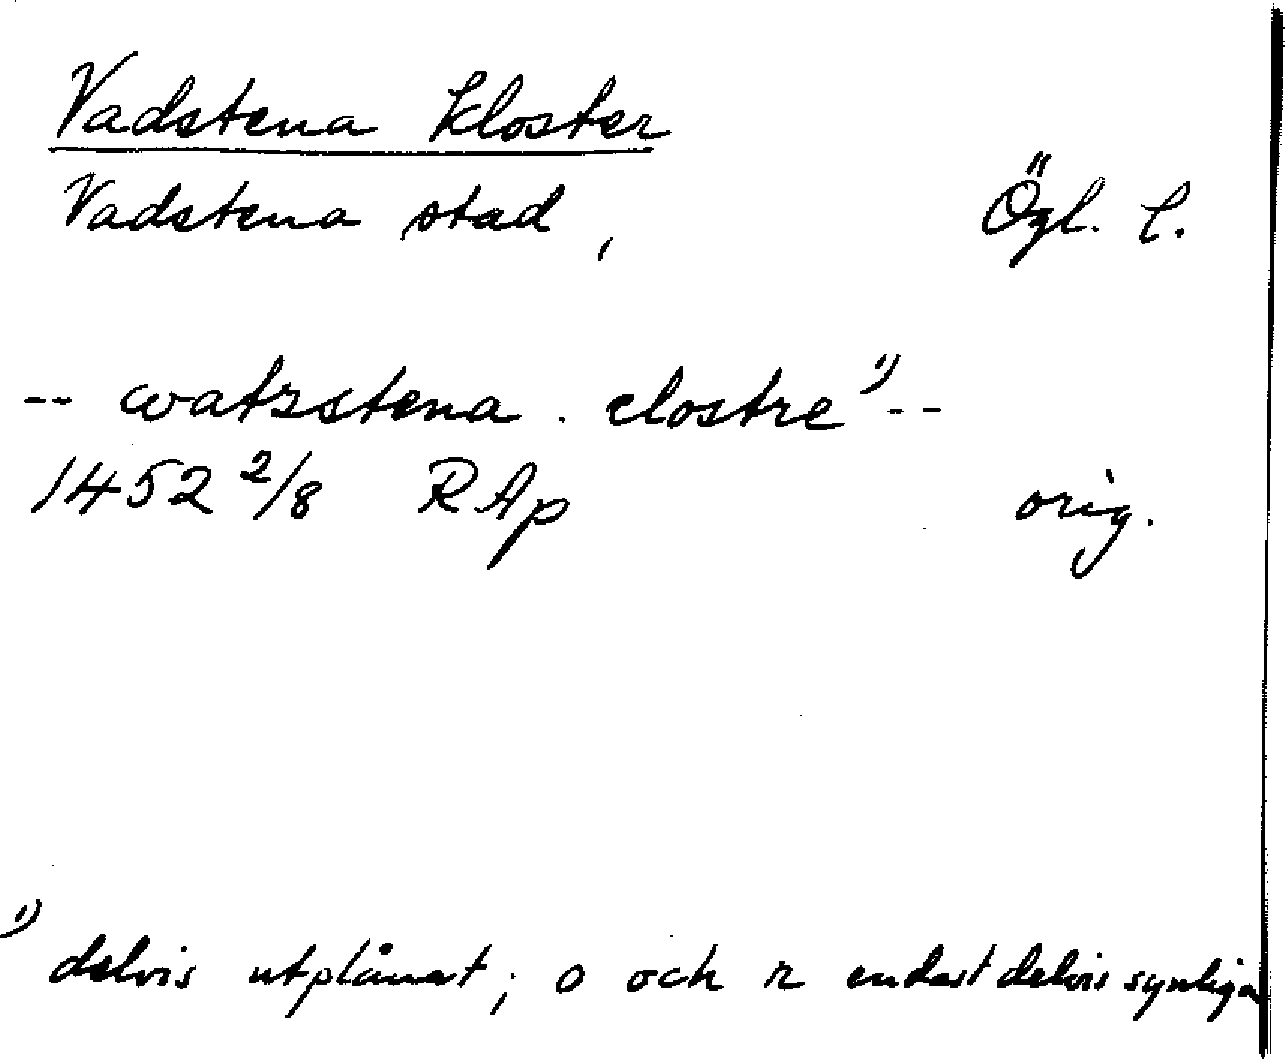 Vadstena kloster
Vadstena stad, Ögl. l.
-- watzstena . clostre 1) --
1452 2/8 RAp orig.
1) delvis utplånat; o och r endast delvis synliga